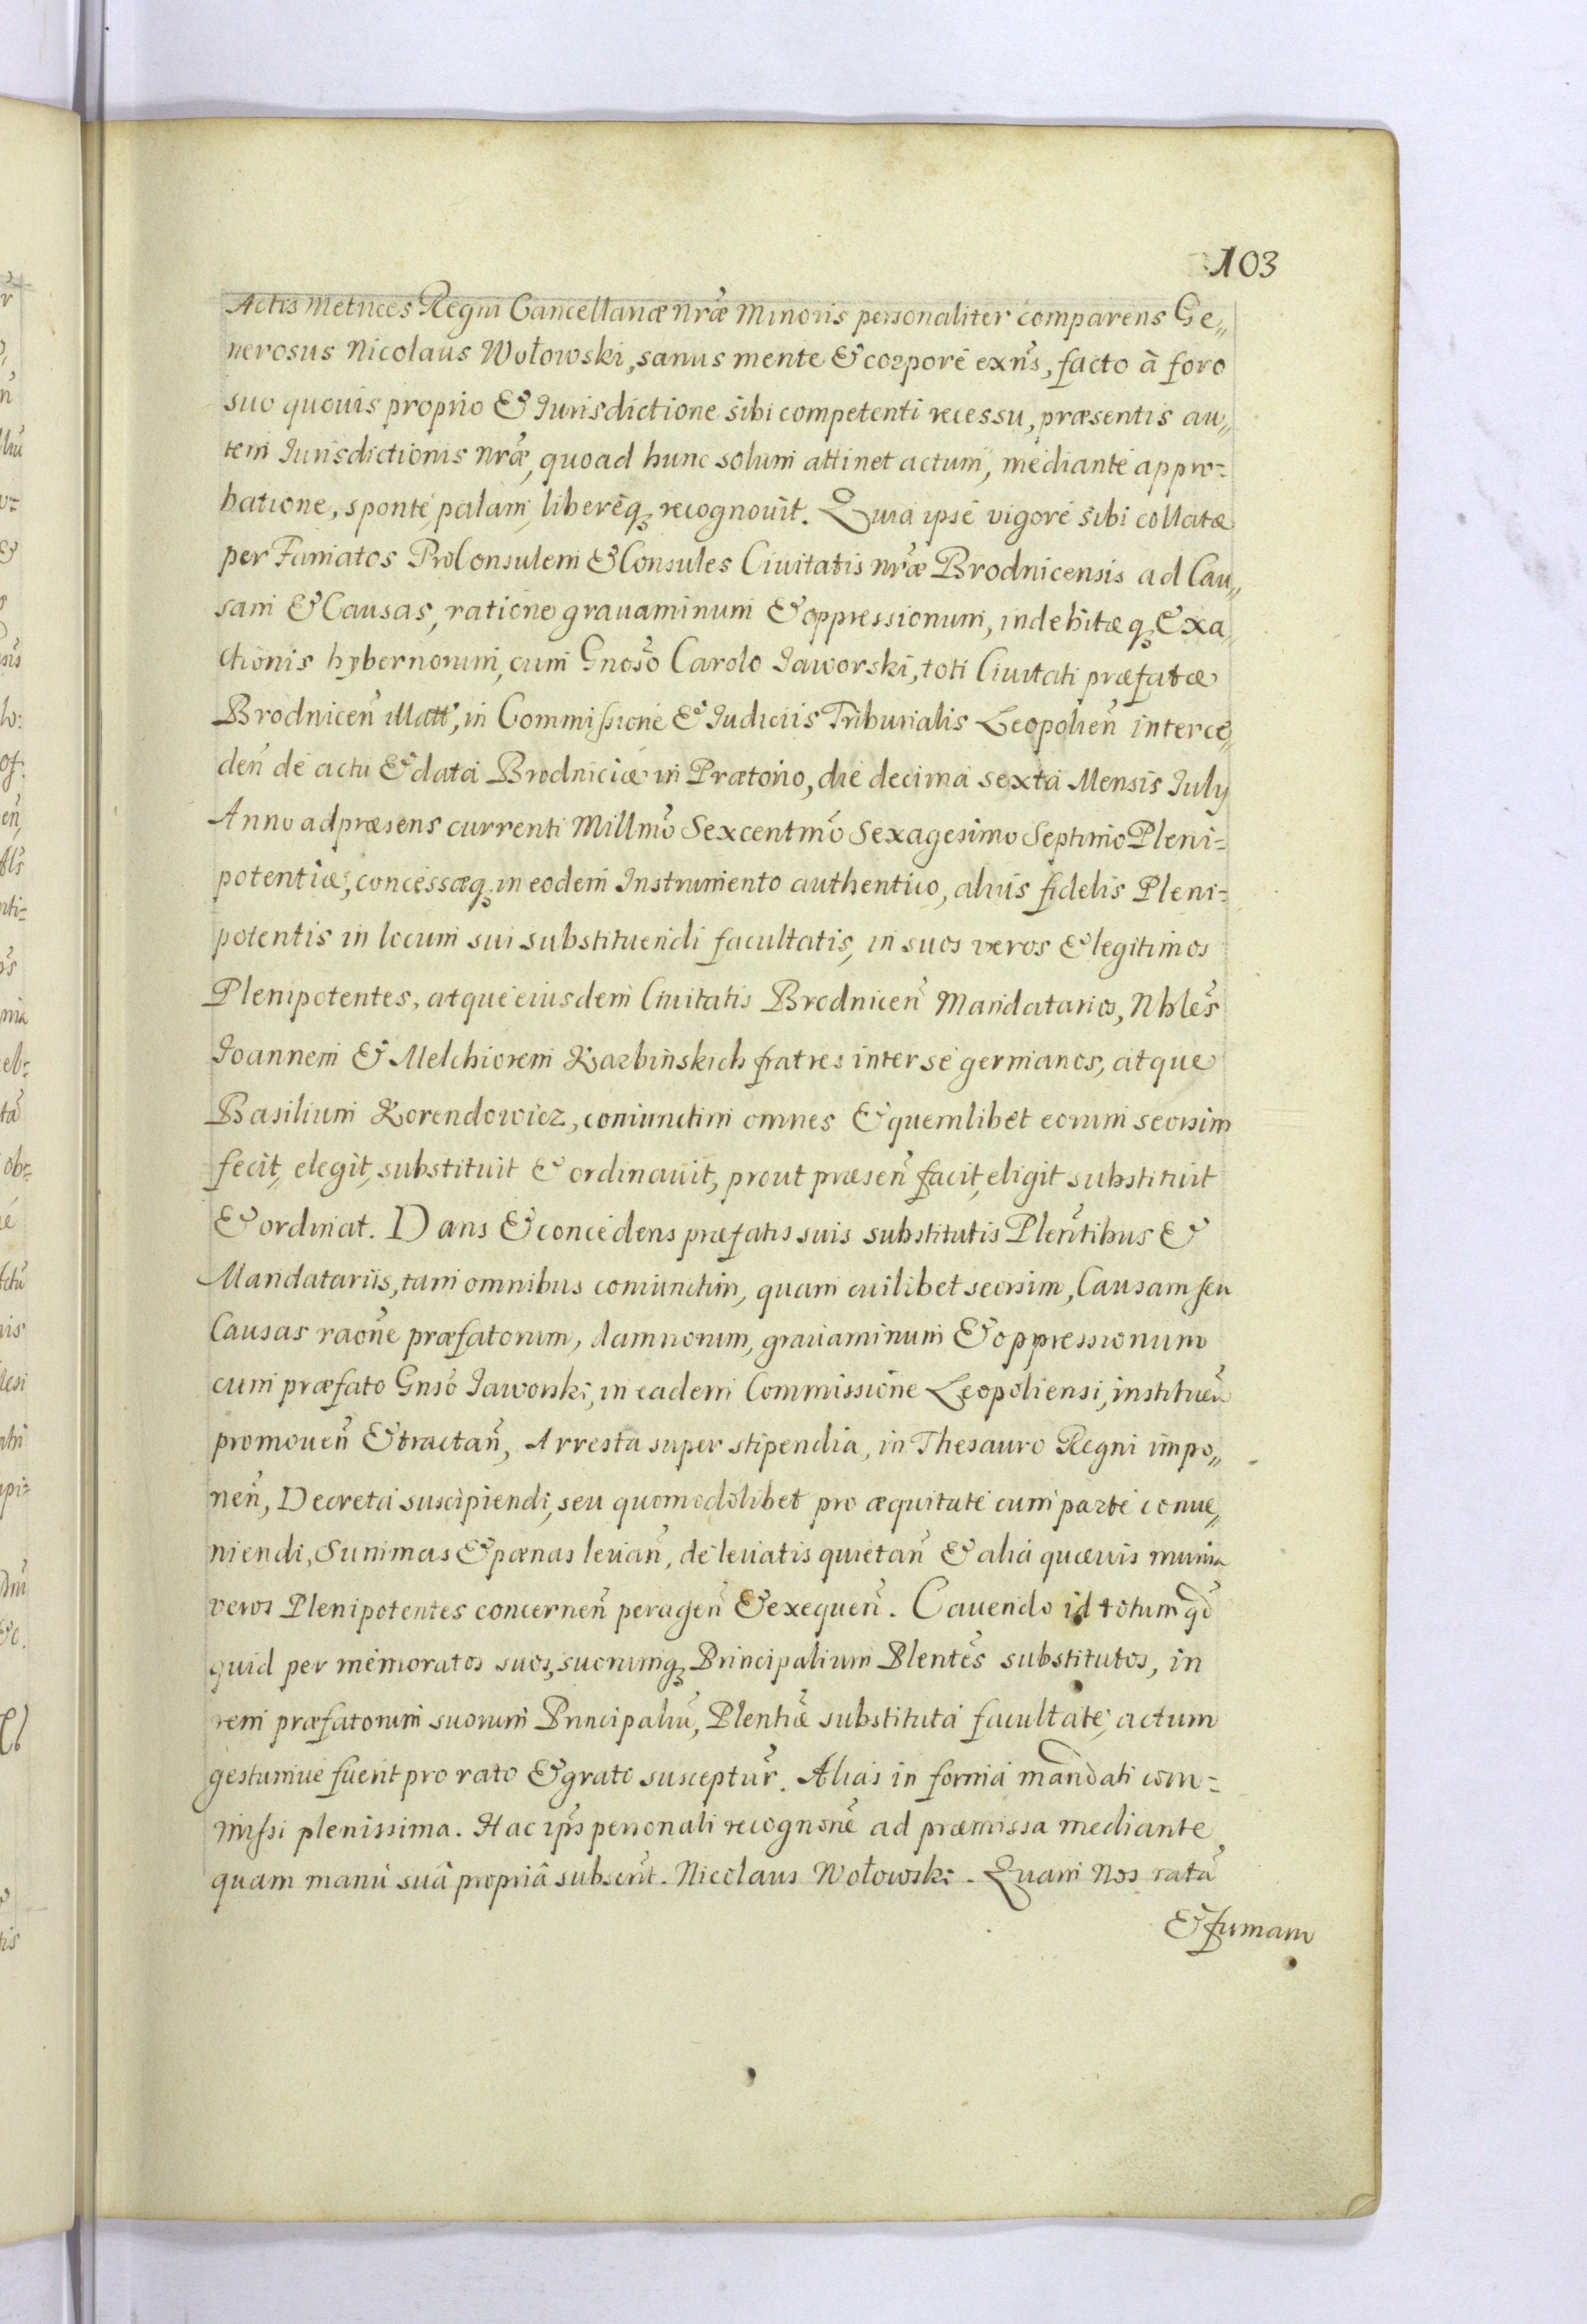 103
Actis Metrices Regni Cancellariæ nr̃æ Minoris personaliter comparens Ge„
nerosus Nicolaus Wołowski, sanus mente & corpore exñs, facto à foro
suo quouis proprio & Iurisdictione sibi competenti recessu, præsentis au„
tem Iurisdictionis nr̃æ, quoad hunc solum attinet actum, mediante appro=
batione, sponte, palam, libereq; recognouit. Quia ipse vigore sibi collatæ
per Famatos ProConsulem & Consules Ciuitatis nr̃æ Brodnicensis ad Cau„
sam & Causas, ratione grauaminum & oppressionum, indebitæq; Exa„
ctionis hybernorum, cum Gnoso Carolo Iaworski, toti Ciuitati præfatæ
Brodniceñ illatt, in Commissione & Iudiciis Tribunalis Leopolieñ interce„
deñ de actu & data Brodniciæ in Prætorio, die decima sexta Mensis July
Anno ad præsens currenti Millmo Sexcentmo Sexagesimo Septimo Pleni=
potentiæ, concessæq; in eodem Instrumento authentico, alius fidelis Pleni=
potentis in locum sui substituendi facultatis, in suos veros & legitimos
Plenipotentes, atque eiusdem Ciuitatis Brodniceñ Mandatarios, Nbles
Ioannem & Melchiorem Karbinskich fratres inter se germanos, atque
Basilium Korendowicz, coniunctim omnes & quemlibet eorum seorsim
fecit, elegit, substituit & ordinauit, prout præseñ facit, eligit substituit
& ordinat. Dans & concedens præfatis suis substitutis Plentibus &
Mandatariis, tam omnibus coniunctim, quam cuilibet seorsim, Causam seu
Causas raone præfatorum, damnorum, grauaminum & oppressionum
cum præfato Gnso Iaworski, in eadem Commissione Leopoliensi, institueñ
promoueñ & tractañ, Arresta super stipendia, in Thesauro Regni impo„
neñ, Decreta suscipiendi, seu quomodolibet pro æquitate cum parte conue„
niendi, Summas & pænas leuañ, de leuatis quietañ & alia quæuis munia
veros Plenipotentes concerneñ perageñ & exequeñ. Cauendo id totum qd
quid per memoratos suos, suorumq; Principalium Plentes substitutos, in
rem præfatorum suorum Principaliũ, Plentiæ substituta facultate, actum
gestumue fuerit pro rato & grato susceptur. Alias in forma mandati com=
missi plenissima. Hac ips personali recognone ad præmissa mediante
quam manu suâ propriâ subscrit. Nicolaus Wołowski. Quam Nos ratã
& firmam